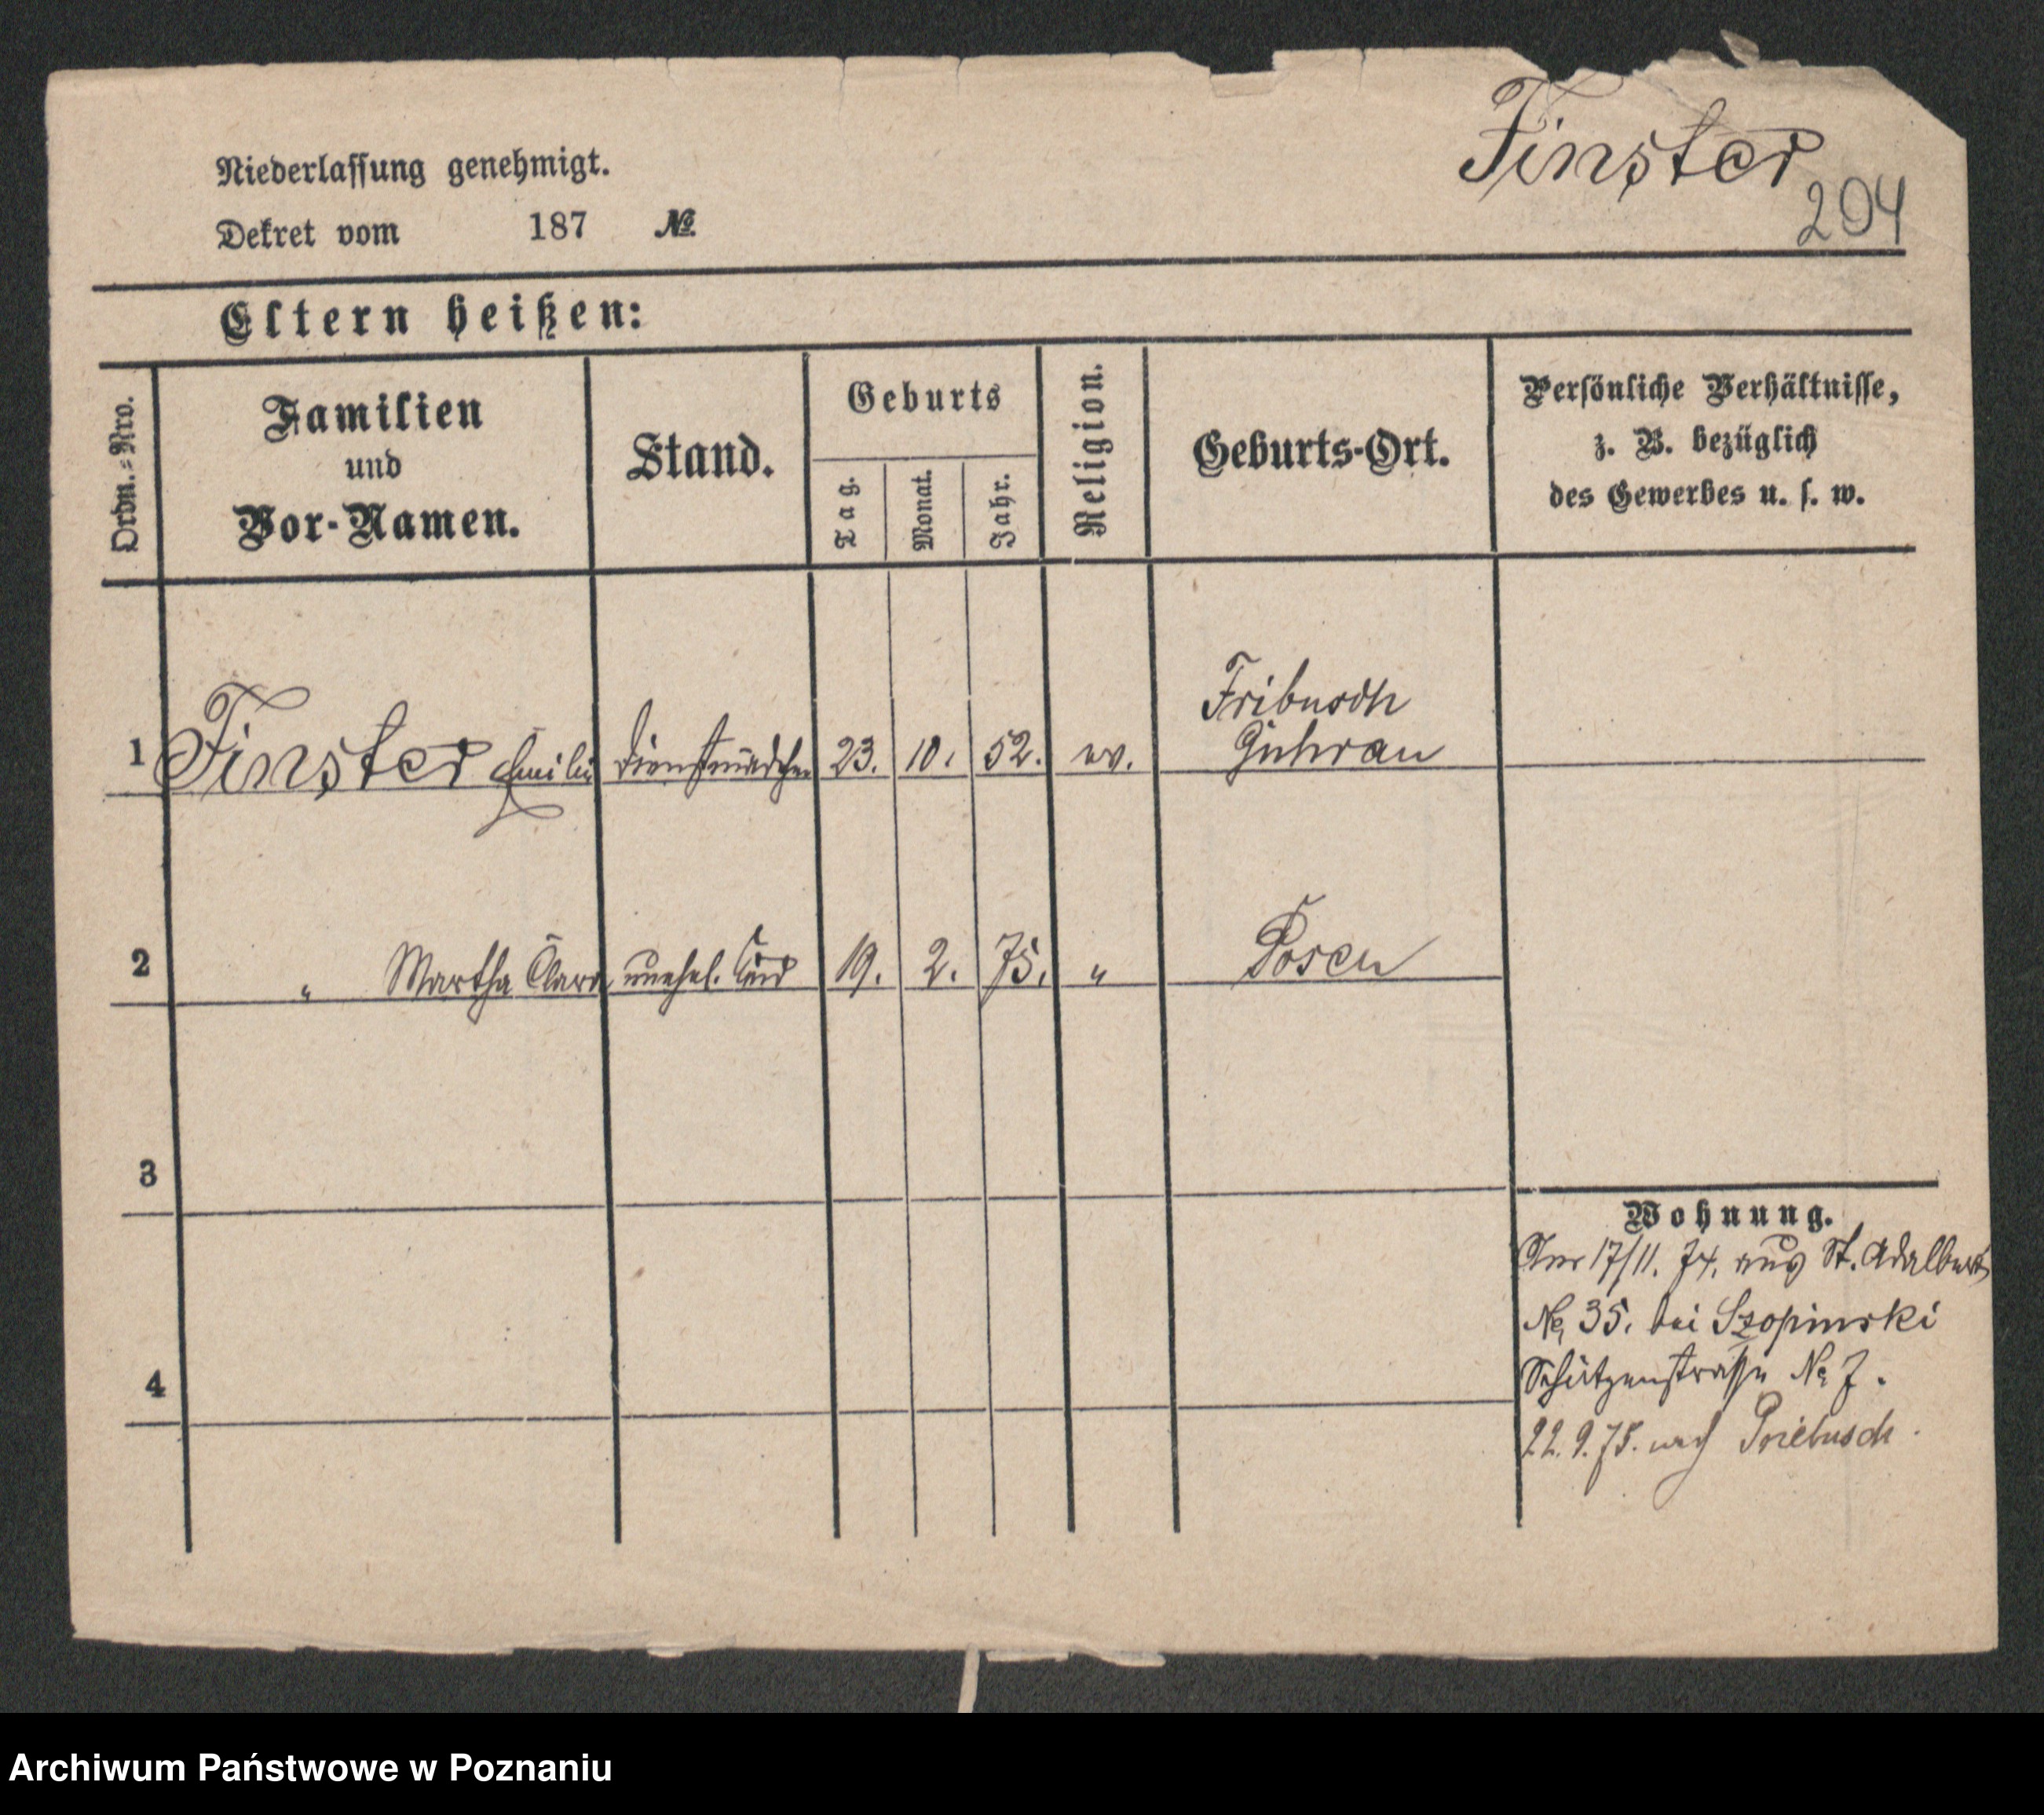 Finster
204
Niederlassung genehmigt.
Dekret vom 187 №
Eltern heißen:
Ordn.-Nro.
Familien
und
Vor-Namen.
Stand.
Geburts
Tag.
Monat.
Jahr.
Religion.
Geburts-Ort.
Persönliche Verhältnisse,
z. B. bezüglich
des Gewerbes u. s. w.
Fribusch
1 Finster Emilie Dienstmädchen 23. 10. 52. ev. Guhrau
2 " Martha Clara unehel. Kind 19. 2. 75. " Posen
3
4
Wohnung.
17/11. 74. aus St. Adalbert
No 35. bei Szopinski
Schützenstrasse No 7.
22.9.75. nach Priebusch.
Archiwum Państwowe w Poznaniu